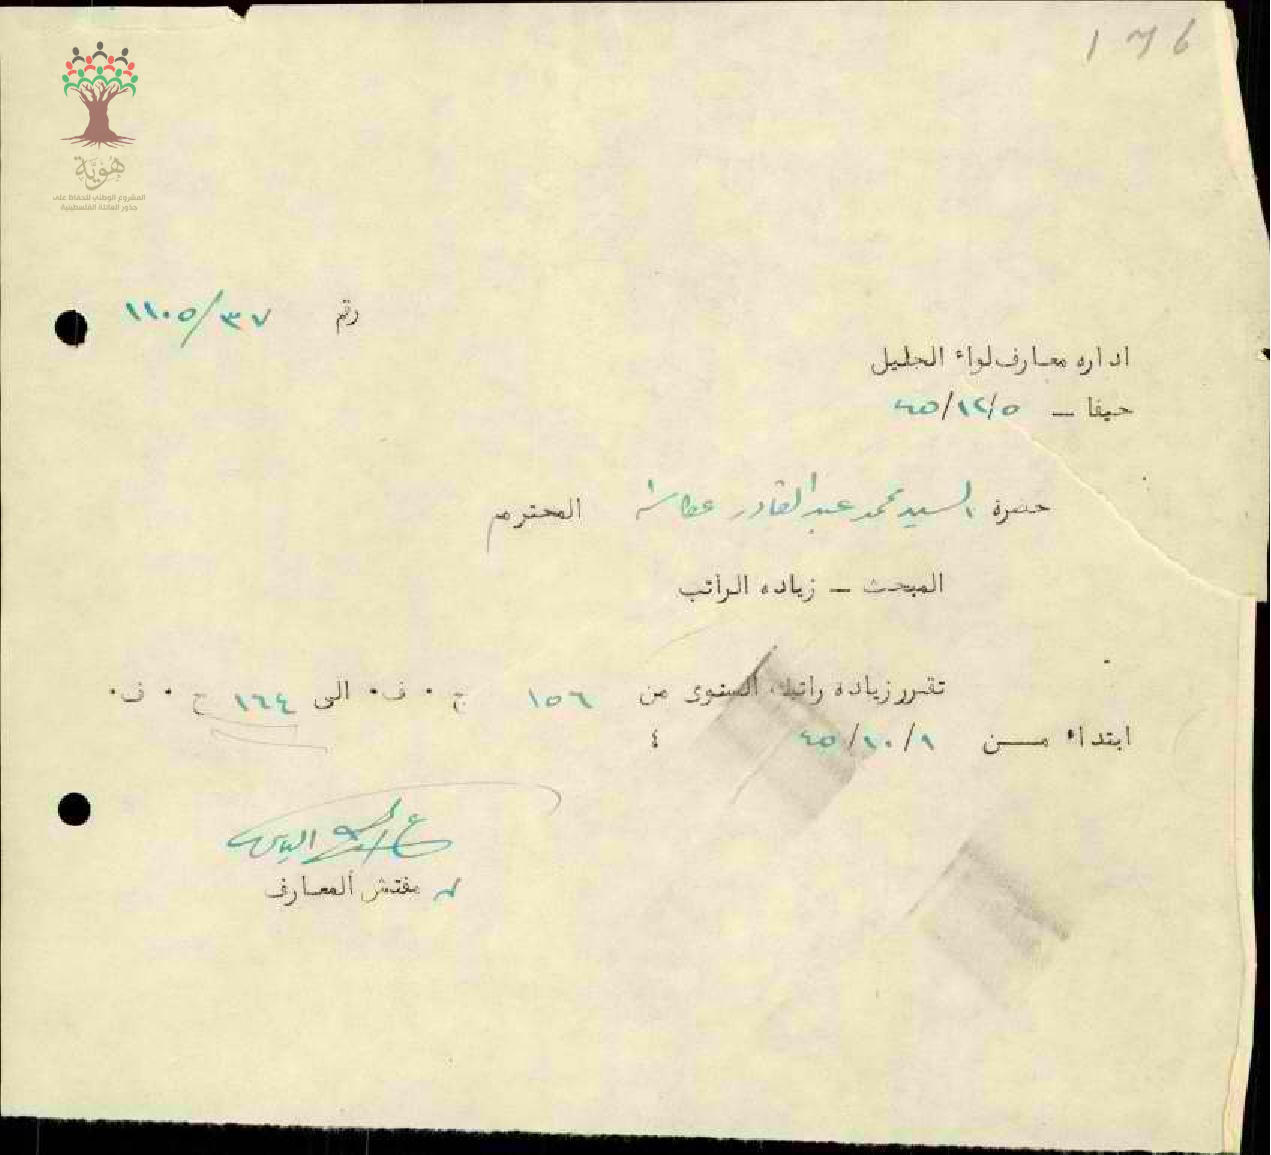 ١٣٦
هُوِيَّة
المشروع الوطني للحفاظ على
جذور العائلة الفلسطينية
رقم ١١٠٥/٣٧
اداره معارف لواء الجليل
حيفا – ٤٥/١٢/٥
حضرة السيد محمد عبد القادر المحترم
المبحث – زياده الراتب
تقرر زياده راتبك السنوى من ١٥٦ ج ٠ ف ٠ الى ١٦٤ ج ٠ ف ٠
ابتداء من ٤٥/١٠/٩ ٤
مفتش المعارف